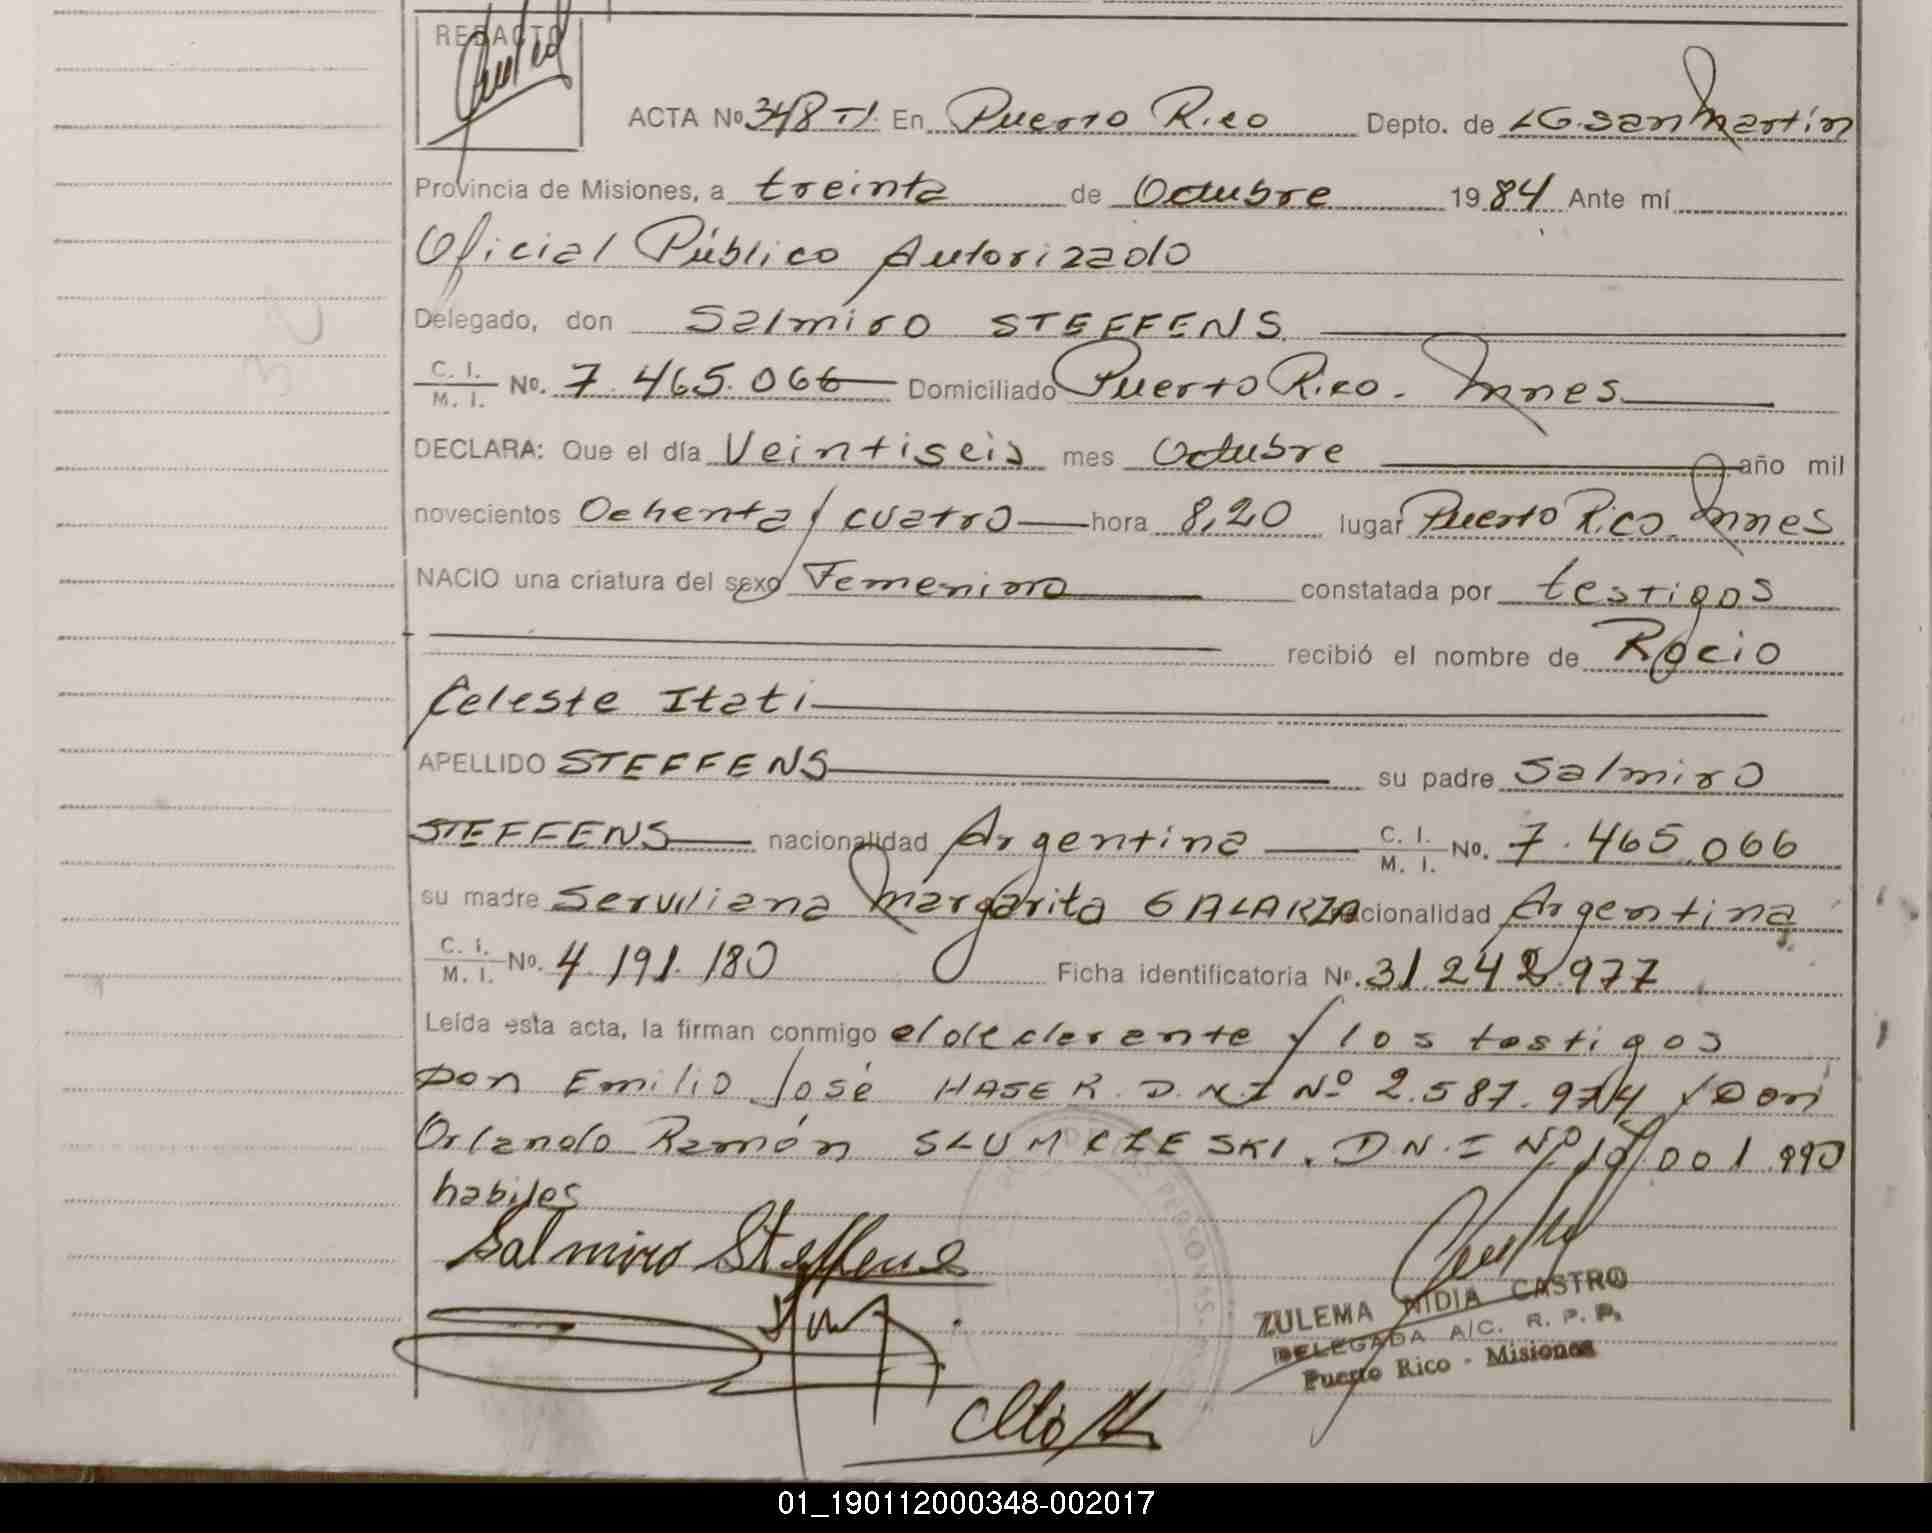 REDACTO
ACTA Nº 348 TI. En Puerto Rico Depto. de LG. San Martín
Provincia de Misiones, a treinta de Octubre 1984 Ante mí
Oficial Público Autorizado
Delegado, don Salmiro STEFFENS
C. I. / M. I. No. 7.465.066 Domiciliado Puerto Rico - Mnes
DECLARA: Que el día Veintiseis mes Octubre año mil
novecientos Ochenta y cuatro hora 8,20 lugar Puerto Rico. Mnes
NACIO una criatura del sexo Femenino constatada por testigos
recibió el nombre de Rocio
Celeste Itati
APELLIDO STEFFENS su padre Salmiro
STEFFENS nacionalidad Argentina C. I. / M. I. No. 7.465.066
su madre Serviliana Margarita GALARZA nacionalidad Argentina
C. I. / M. I. No. 4.191.180 Ficha identificatoria Nº. 31.242.977
Leída esta acta, la firman conmigo el declarante y los testigos
Don Emilio José HASER D.N.I Nº 2.587.974 y Don
Orlando Ramón SLUMCZESKI. D.N.I Nº 10.001.990
habiles
Salmiro Steffens
ZULEMA NIDIA CASTRO
DELEGADA A/C. R. P. P.
Puerto Rico - Misiones
01_190112000348-002017